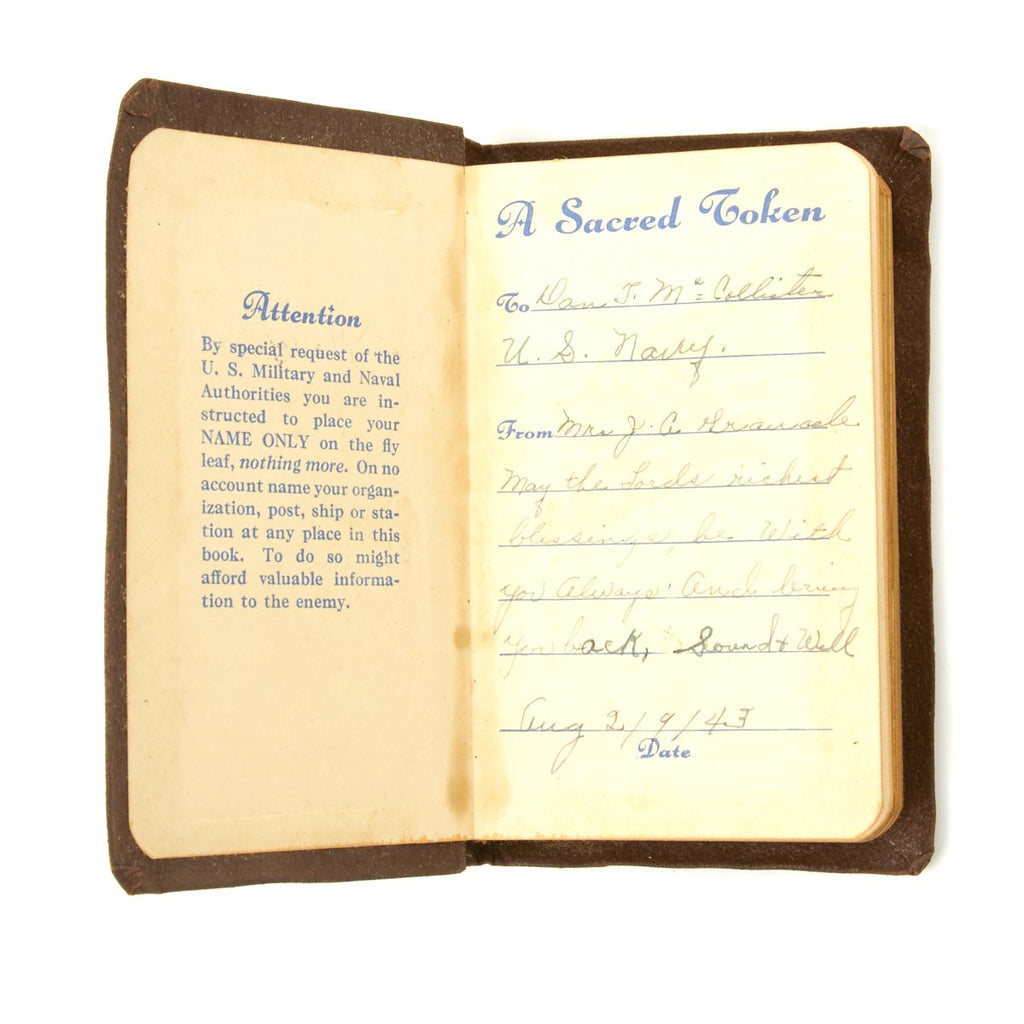 Attention
By special request of the
U. S. Military and Naval
Authorities you are in-
structed to place your
NAME ONLY on the fly
leaf, nothing more. On no
account name your organ-
ization, post, ship or sta-
tion at any place in this
book. To do so might
afford valuable informa-
tion to the enemy.
A Sacred Token
To Dan T. Mc Collister
U. S. Navy.
From Mrs J. C.
May the Lords richest
blessings, be With
you Always And bring
You back, Sound & Well
Aug 2/9/43
Date